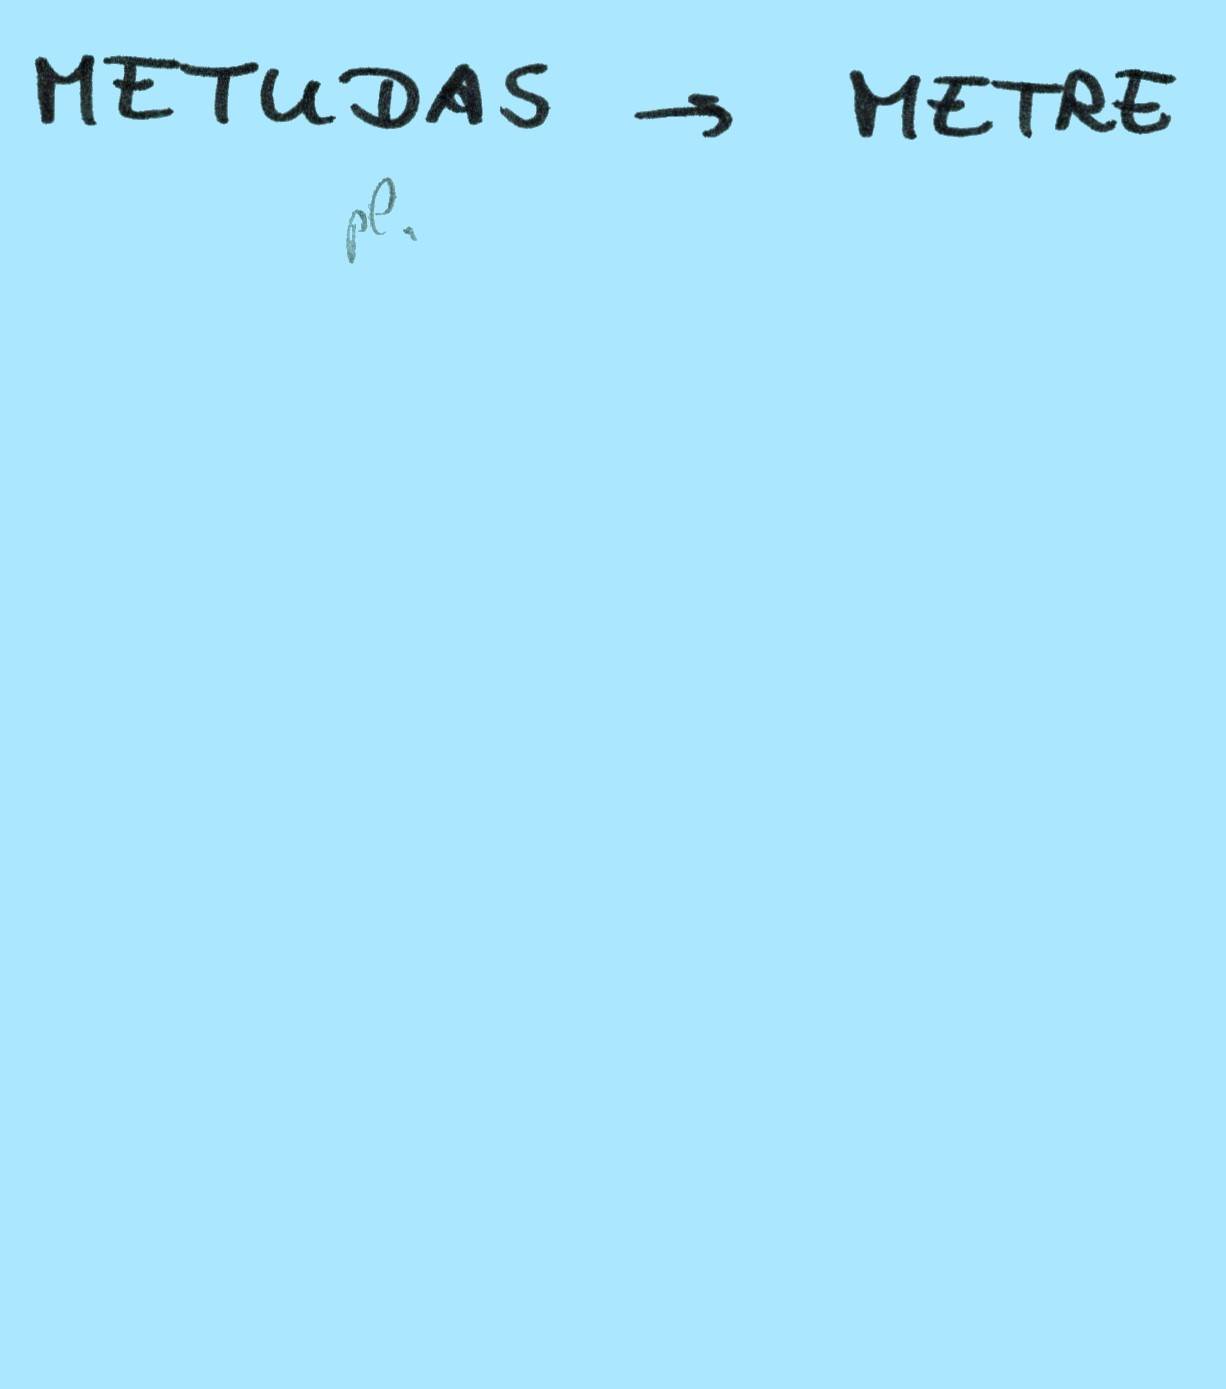 METUDAS → METRE
pl.